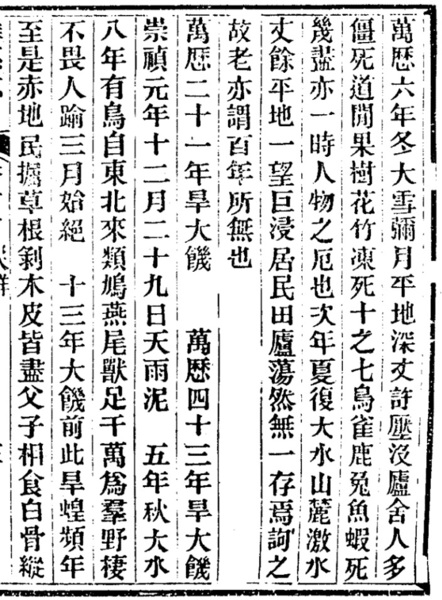 萬厯六年冬大雪彌月平地深丈許壓沒廬舍人多
僵死道閒果樹花竹凍死十之七鳥雀鹿兔魚蝦死
幾盡亦一時人物之厄也次年夏復大水山麓激水
丈餘平地一望巨浸居民田廬蕩然無一存焉訽之
故老亦謂百年所無也
萬厯二十一年旱大饑　萬厯四十三年旱大饑
崇禎元年十二月二十九日天雨泥　五年秋大水
八年有鳥自東北來類鳩燕尾獸足千萬爲羣野棲
不畏人踰三月始絕　十三年大饑前此旱蝗頻年
至是赤地民掘草根剥木皮皆盡父子相食白骨縱